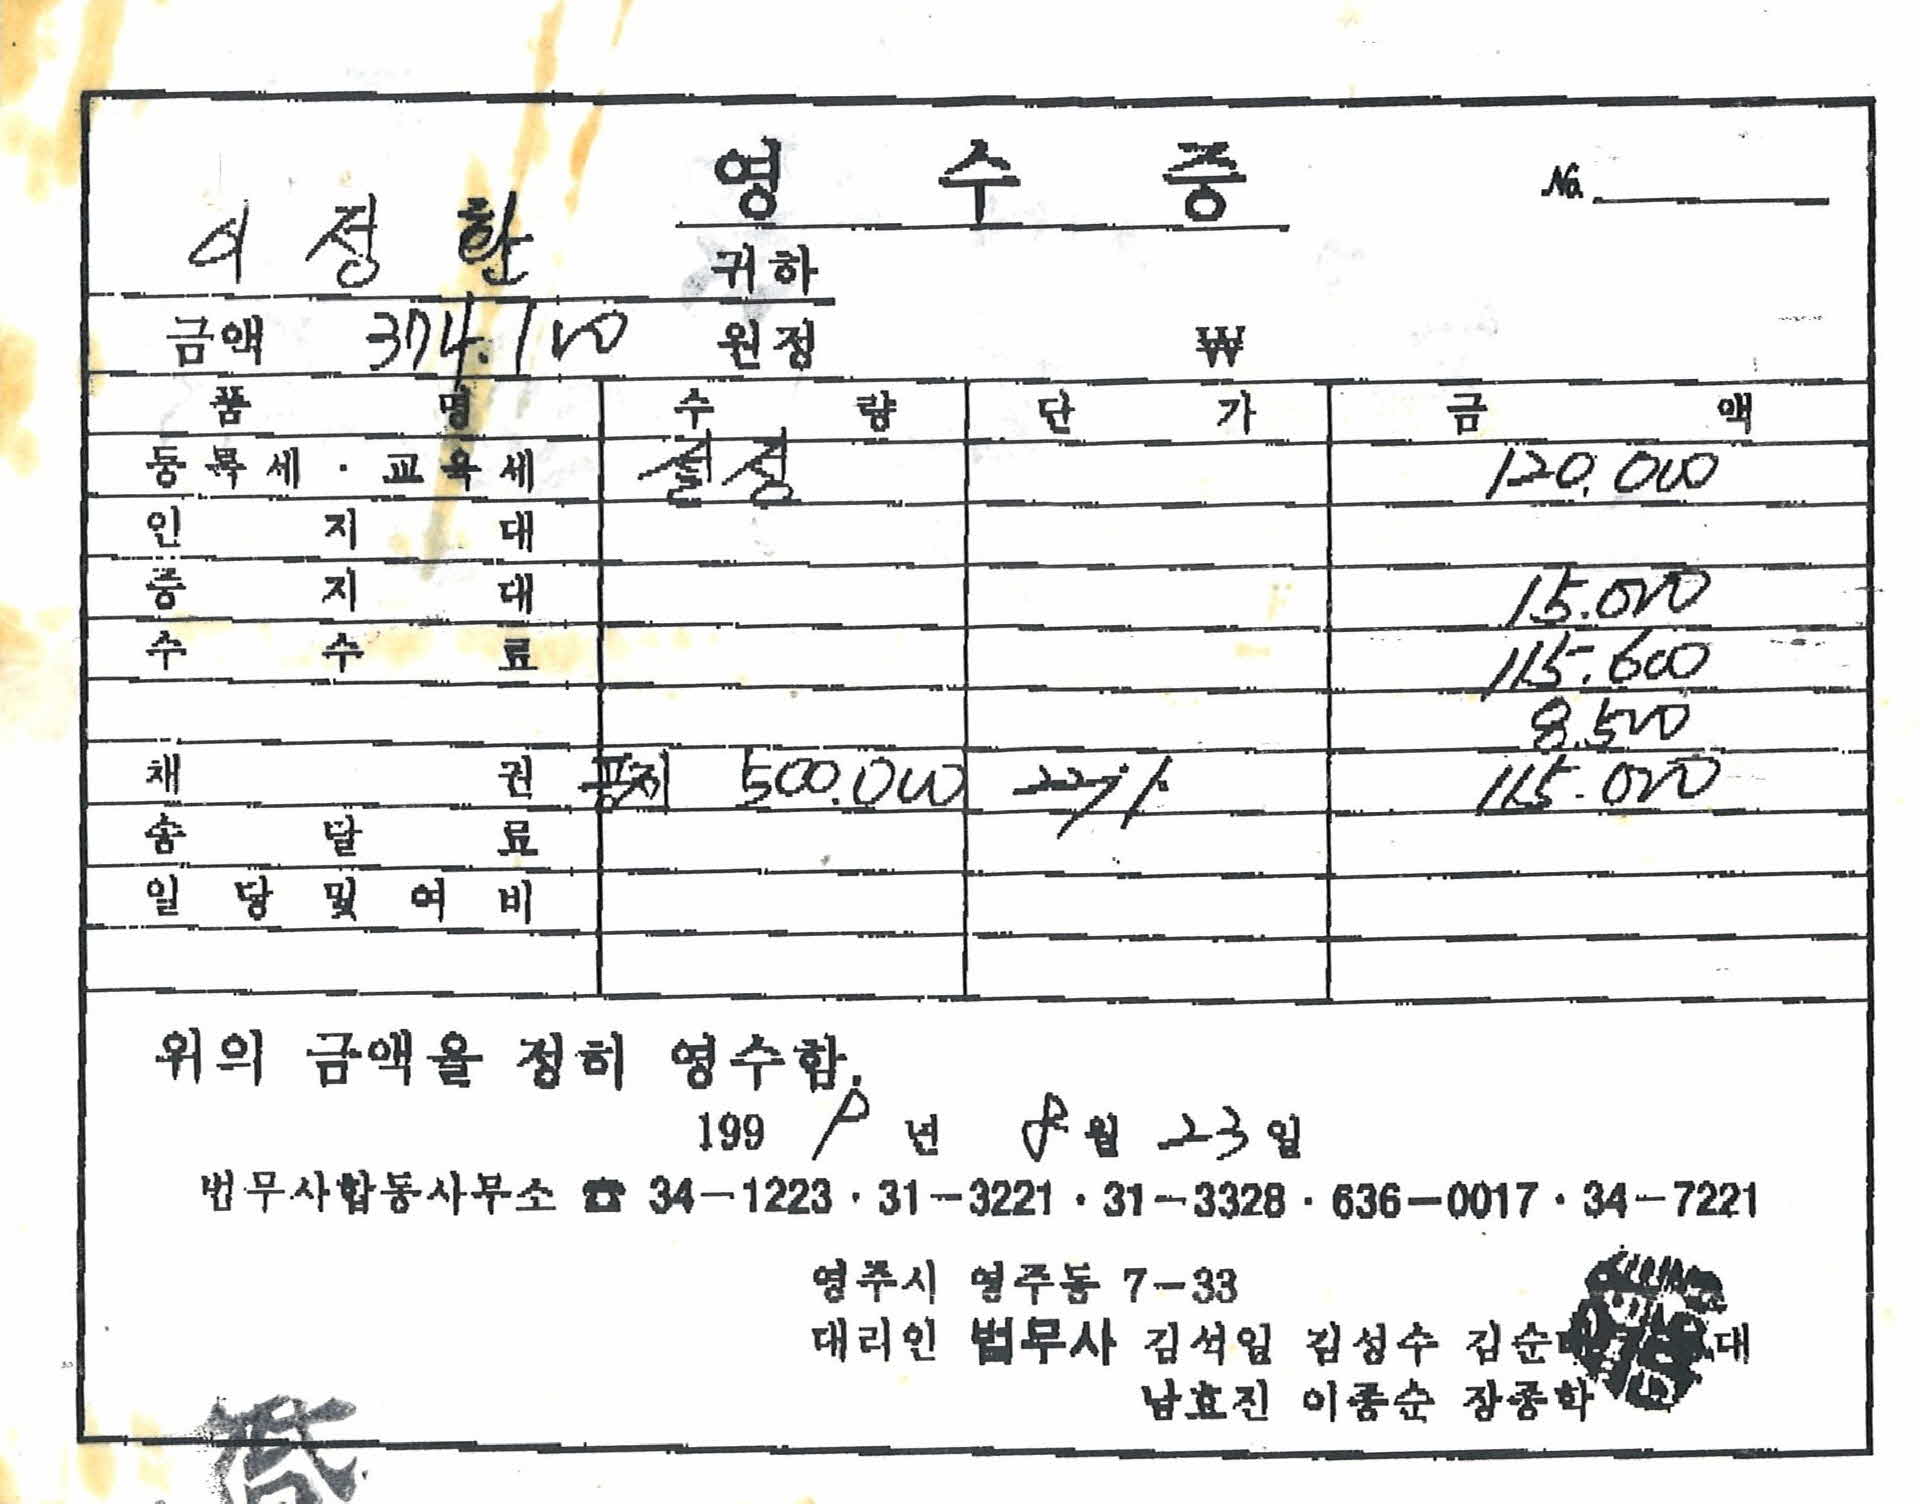 영 수 증
No.
이 정 환 귀하
금액 374.100 원정 ₩
품 명 수 량 단 가 금 액
등 록 세 · 교 육 세 설정 120.000
인 지 대
증 지 대 15.000
수 수 료 115.600
8.500
채 권 500.000 115.000
송 달 료
일 당 및 여 비
위의 금액을 정히 영수함.
199 9 년 8 월 23 일
법무사합동사무소 ☎ 34-1223 · 31-3221 · 31-3328 · 636-0017 · 34-7221
영주시 영주동 7-33
대리인 법무사 김석일 김성수 김순 대
남효진 이종순 장종학